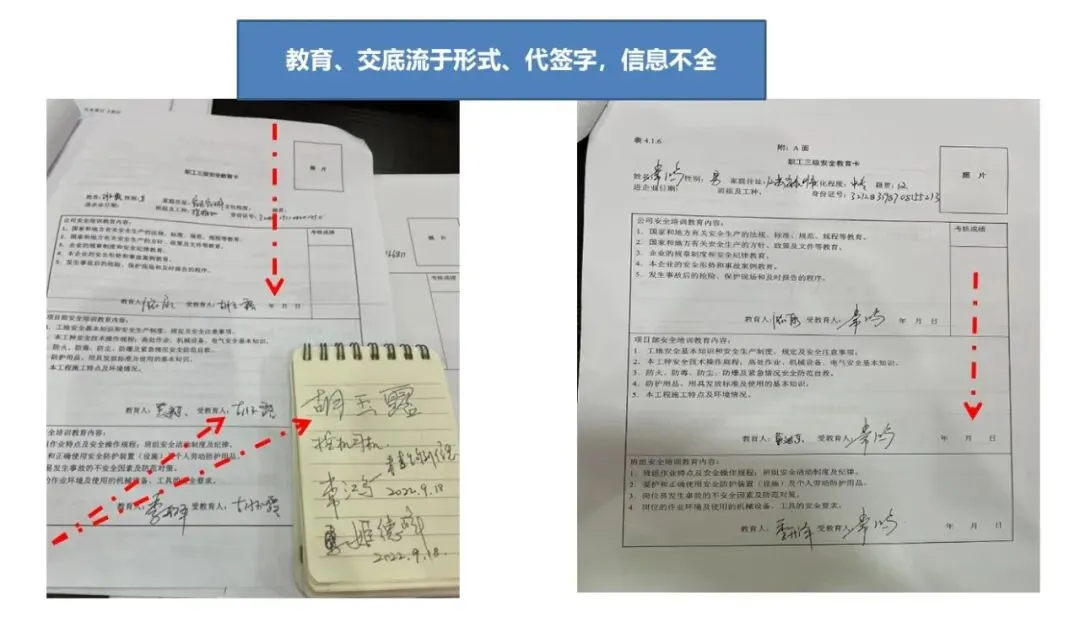 教育、交底流于形式、代签字，信息不全
职工三级安全教育卡
照 片
公司安全培训教育内容：
考核成绩
1、国家和地方有关安全生产的法规、标准、规范、规程等教育。
2、国家和地方有关安全生产的方针、政策及文件等教育。
3、企业的规章制度和安全纪律教育。
4、本企业的安全形势和事故案例教育。
5、发生事故后的抢险、保护现场和及时报告的程序。
教育人： 受教育人： 年 月 日
项目部安全培训教育内容：
1、工地安全基本知识和安全生产制度、规定及安全注意事项。
2、本工种安全技术操作规程；高处作业、机械设备、电气安全基本知识。
防火、防毒、防尘、防爆及紧急情况安全防范自救。
防护用品、用具发放标准及使用的基本知识。
本工程施工特点及环境情况。
教育人： 受教育人：
全培训教育内容：
作业特点及安全操作规程；班组安全活动制度及纪律。
和正确使用安全防护装置（设施）及个人劳动防护用品。
易发生事故的不安全因素及防范对策。
作业环境及使用的机械设备、工具的安全要求。
教育人： 受教育人：
照 片
考核成绩
胡玉露
挖机司机
2022.9.18
姬德
2022.9.18
表 4.1.6
附：A 面
职工三级安全教育卡
照 片
姓名： 性别：男 家庭住址： 文化程度： 籍贯：
进企业日期： 班组及工种： 身份证号：
公司安全培训教育内容：
考核成绩
1、国家和地方有关安全生产的法规、标准、规范、规程等教育。
2、国家和地方有关安全生产的方针、政策及文件等教育。
3、企业的规章制度和安全纪律教育。
4、本企业的安全形势和事故案例教育。
5、发生事故后的抢险、保护现场和及时报告的程序。
教育人： 受教育人： 年 月 日
项目部安全培训教育内容：
1、工地安全基本知识和安全生产制度、规定及安全注意事项。
2、本工种安全技术操作规程；高处作业、机械设备、电气安全基本知识。
3、防火、防毒、防尘、防爆及紧急情况安全防范自救。
4、防护用品、用具发放标准及使用的基本知识。
5、本工程施工特点及环境情况。
教育人： 受教育人： 年 月 日
班组安全培训教育内容：
1、班组作业特点及安全操作规程；班组安全活动制度及纪律。
2、爱护和正确使用安全防护装置（设施）及个人劳动防护用品。
3、岗位易发生事故的不安全因素及防范对策。
4、岗位的作业环境及使用的机械设备、工具的安全要求。
教育人： 受教育人： 年 月 日